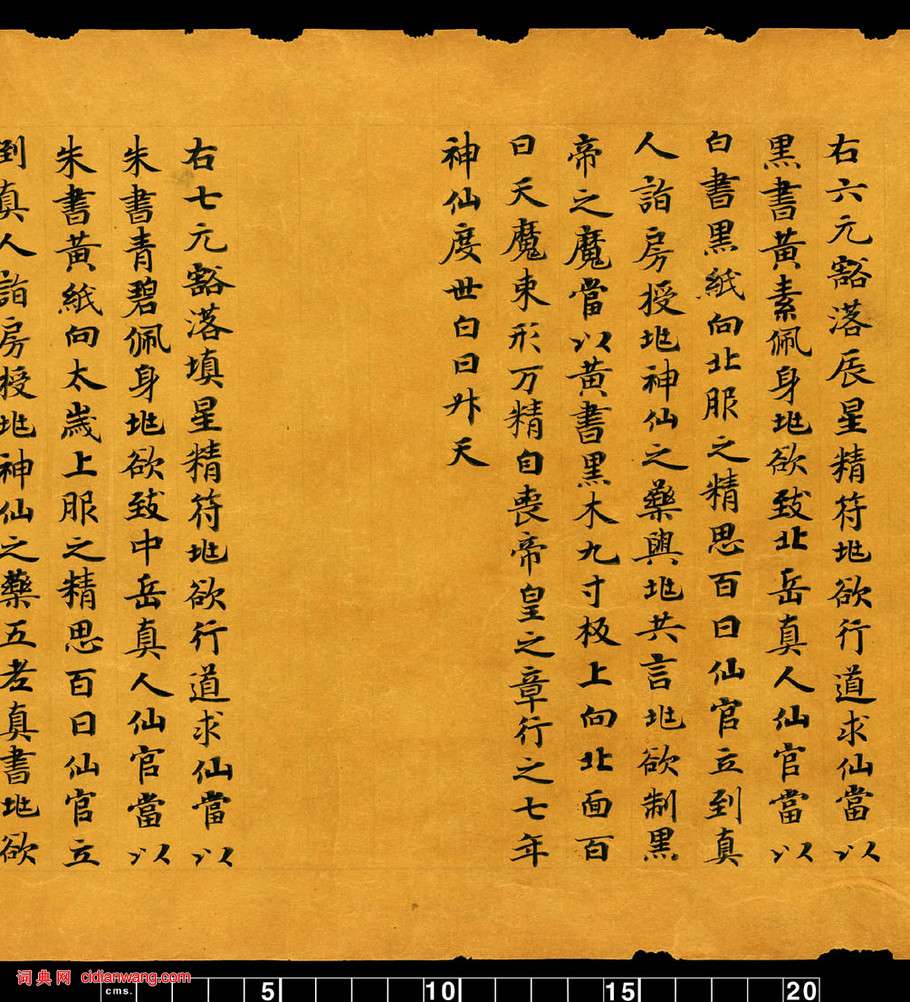 右六元豁落辰星精符兆欲行道求仙當以
黑書黃素佩身兆欲致北岳真人仙官當以
白書黑紙向北服之精思百日仙官立到真
人詣房授兆神仙之藥與兆共言兆欲制黑
帝之魔當以黃書黑木九寸板上向北面百
日天魔束形万精自喪帝皇之章行之七年
神仙度世白日升天
右七元豁落填星精符兆欲行道求仙當以
朱書青碧佩身兆欲致中岳真人仙官當以
朱書黃紙向太歲上服之精思百日仙官立
到真人詣房授兆神仙之藥五老真書兆欲
词典网 cidianwang.com
cms. 5 10 15 20